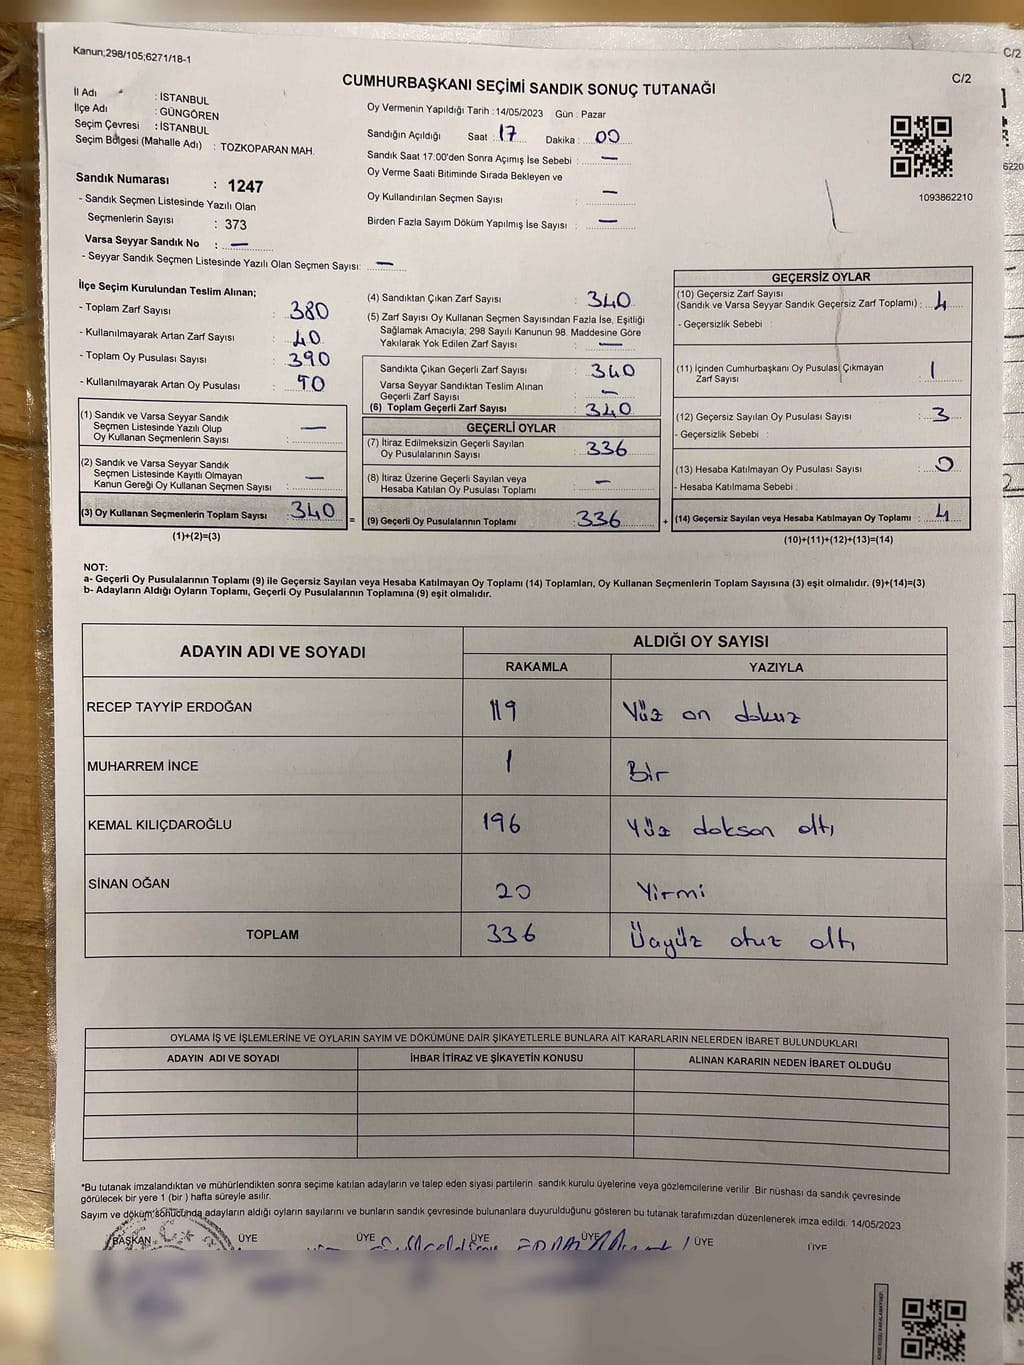 Kanun;298/105;6271/18-1
C/2
CUMHURBAŞKANI SEÇİMİ SANDIK SONUÇ TUTANAĞI
İl Adı : İSTANBUL
İlçe Adı : GÜNGÖREN
Seçim Çevresi : İSTANBUL
Seçim Bölgesi (Mahalle Adı) : TOZKOPARAN MAH.
Sandık Numarası : 1247
- Sandık Seçmen Listesinde Yazılı Olan
Seçmenlerin Sayısı : 373
Varsa Seyyar Sandık No : —
- Seyyar Sandık Seçmen Listesinde Yazılı Olan Seçmen Sayısı: —
Oy Vermenin Yapıldığı Tarih : 14/05/2023 Gün : Pazar
Sandığın Açıldığı Saat : 17 Dakika : 00
Sandık Saat 17:00'den Sonra Açımış İse Sebebi : —
Oy Verme Saati Bitiminde Sırada Bekleyen ve
Oy Kullandırılan Seçmen Sayısı : —
Birden Fazla Sayım Döküm Yapılmış İse Sayısı : —
1093862210
İlçe Seçim Kurulundan Teslim Alınan;
- Toplam Zarf Sayısı : 380
- Kullanılmayarak Artan Zarf Sayısı : 40
- Toplam Oy Pusulası Sayısı : 390
- Kullanılmayarak Artan Oy Pusulası : 50
(1) Sandık ve Varsa Seyyar Sandık
Seçmen Listesinde Yazılı Olup
Oy Kullanan Seçmenlerin Sayısı : —
(2) Sandık ve Varsa Seyyar Sandık
Seçmen Listesinde Kayıtlı Olmayan
Kanun Gereği Oy Kullanan Seçmen Sayısı : —
(3) Oy Kullanan Seçmenlerin Toplam Sayısı : 340
(1)+(2)=(3)
(4) Sandıktan Çıkan Zarf Sayısı : 340
(5) Zarf Sayısı Oy Kullanan Seçmen Sayısından Fazla İse, Eşitliği
Sağlamak Amacıyla; 298 Sayılı Kanunun 98. Maddesine Göre
Yakılarak Yok Edilen Zarf Sayısı : —
Sandıkta Çıkan Geçerli Zarf Sayısı : 340
Varsa Seyyar Sandıktan Teslim Alınan
Geçerli Zarf Sayısı : —
(6) Toplam Geçerli Zarf Sayısı : 340
GEÇERLİ OYLAR
(7) İtiraz Edilmeksizin Geçerli Sayılan
Oy Pusulalarının Sayısı : 336
(8) İtiraz Üzerine Geçerli Sayılan veya
Hesaba Katılan Oy Pusulası Toplamı : —
= (9) Geçerli Oy Pusulalarının Toplamı : 336 +
GEÇERSİZ OYLAR
(10) Geçersiz Zarf Sayısı
(Sandık ve Varsa Seyyar Sandık Geçersiz Zarf Toplamı) : 4
- Geçersizlik Sebebi :
(11) İçinden Cumhurbaşkanı Oy Pusulası Çıkmayan
Zarf Sayısı : 1
(12) Geçersiz Sayılan Oy Pusulası Sayısı : 3
- Geçersizlik Sebebi :
(13) Hesaba Katılmayan Oy Pusulası Sayısı : 0
- Hesaba Katılmama Sebebi :
(14) Geçersiz Sayılan veya Hesaba Katılmayan Oy Toplamı : 4
(10)+(11)+(12)+(13)=(14)
NOT:
a- Geçerli Oy Pusulalarının Toplamı (9) ile Geçersiz Sayılan veya Hesaba Katılmayan Oy Toplamı (14) Toplamları, Oy Kullanan Seçmenlerin Toplam Sayısına (3) eşit olmalıdır. (9)+(14)=(3)
b- Adayların Aldığı Oyların Toplamı, Geçerli Oy Pusulalarının Toplamına (9) eşit olmalıdır.
ADAYIN ADI VE SOYADI ALDIĞI OY SAYISI
RAKAMLA YAZIYLA
RECEP TAYYİP ERDOĞAN 119 Yüz on dokuz
MUHARREM İNCE 1 Bir
KEMAL KILIÇDAROĞLU 196 Yüz doksan altı
SİNAN OĞAN 20 Yirmi
TOPLAM 336 Üçyüz otuz altı
OYLAMA İŞ VE İŞLEMLERİNE VE OYLARIN SAYIM VE DÖKÜMÜNE DAİR ŞİKAYETLERLE BUNLARA AİT KARARLARIN NELERDEN İBARET BULUNDUKLARI
ADAYIN ADI VE SOYADI İHBAR İTİRAZ VE ŞİKAYETİN KONUSU ALINAN KARARIN NEDEN İBARET OLDUĞU
*Bu tutanak imzalandıktan ve mühürlendikten sonra seçime katılan adayların ve talep eden siyasi partilerin sandık kurulu üyelerine veya gözlemcilerine verilir. Bir nüshası da sandık çevresinde
görülecek bir yere 1 (bir ) hafta süreyle asılır.
Sayım ve döküm sonucunda adayların aldığı oyların sayılarını ve bunların sandık çevresinde bulunanlara duyurulduğunu gösteren bu tutanak tarafımızdan düzenlenerek imza edildi. 14/05/2023
BAŞKAN ÜYE ÜYE ÜYE ÜYE ÜYE ÜYE
C/2